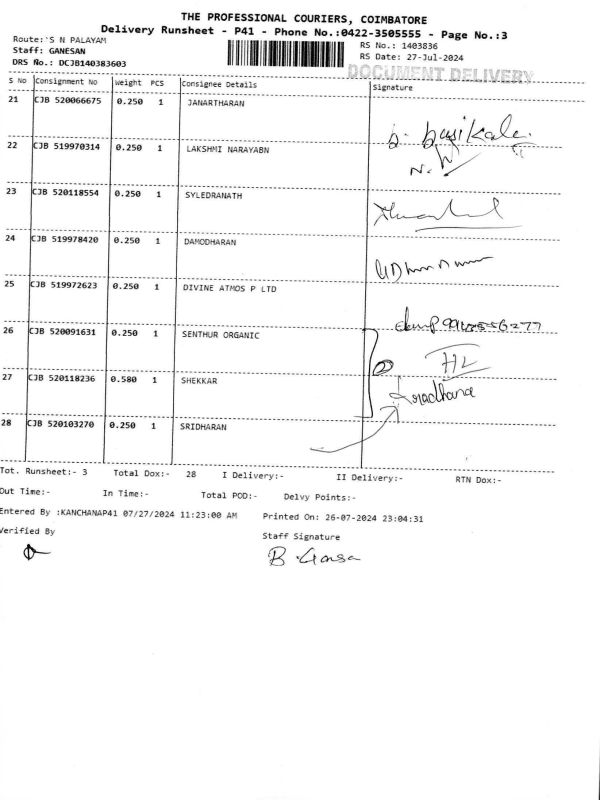 THE PROFESSIONAL COURIERS, COIMBATORE
Delivery Runsheet - P41 - Phone No.:0422-3505555 - Page No.:3
Route:'S N PALAYAM
RS No.: 1403836
Staff: GANESAN
RS Date: 27-Jul-2024
DRS No.: DCJB140383603
DOCUMENT DELIVERY
S No Consignment No Weight PCS Consignee Details Signature
21 CJB 520066675 0.250 1 JANARTHARAN
22 CJB 519970314 0.250 1 LAKSHMI NARAYABN
23 CJB 520118554 0.250 1 SYLEDRANATH
24 CJB 519978420 0.250 1 DAMODHARAN
25 CJB 519972623 0.250 1 DIVINE ATMOS P LTD
26 CJB 520091631 0.250 1 SENTHUR ORGANIC
27 CJB 520118236 0.580 1 SHEKKAR
28 CJB 520103270 0.250 1 SRIDHARAN
Tot. Runsheet:- 3 Total Dox:- 28 I Delivery:- II Delivery:- RTN Dox:-
Out Time:- In Time:- Total POD:- Delvy Points:-
Entered By :KANCHANAP41 07/27/2024 11:23:00 AM Printed On: 26-07-2024 23:04:31
Verified By Staff Signature